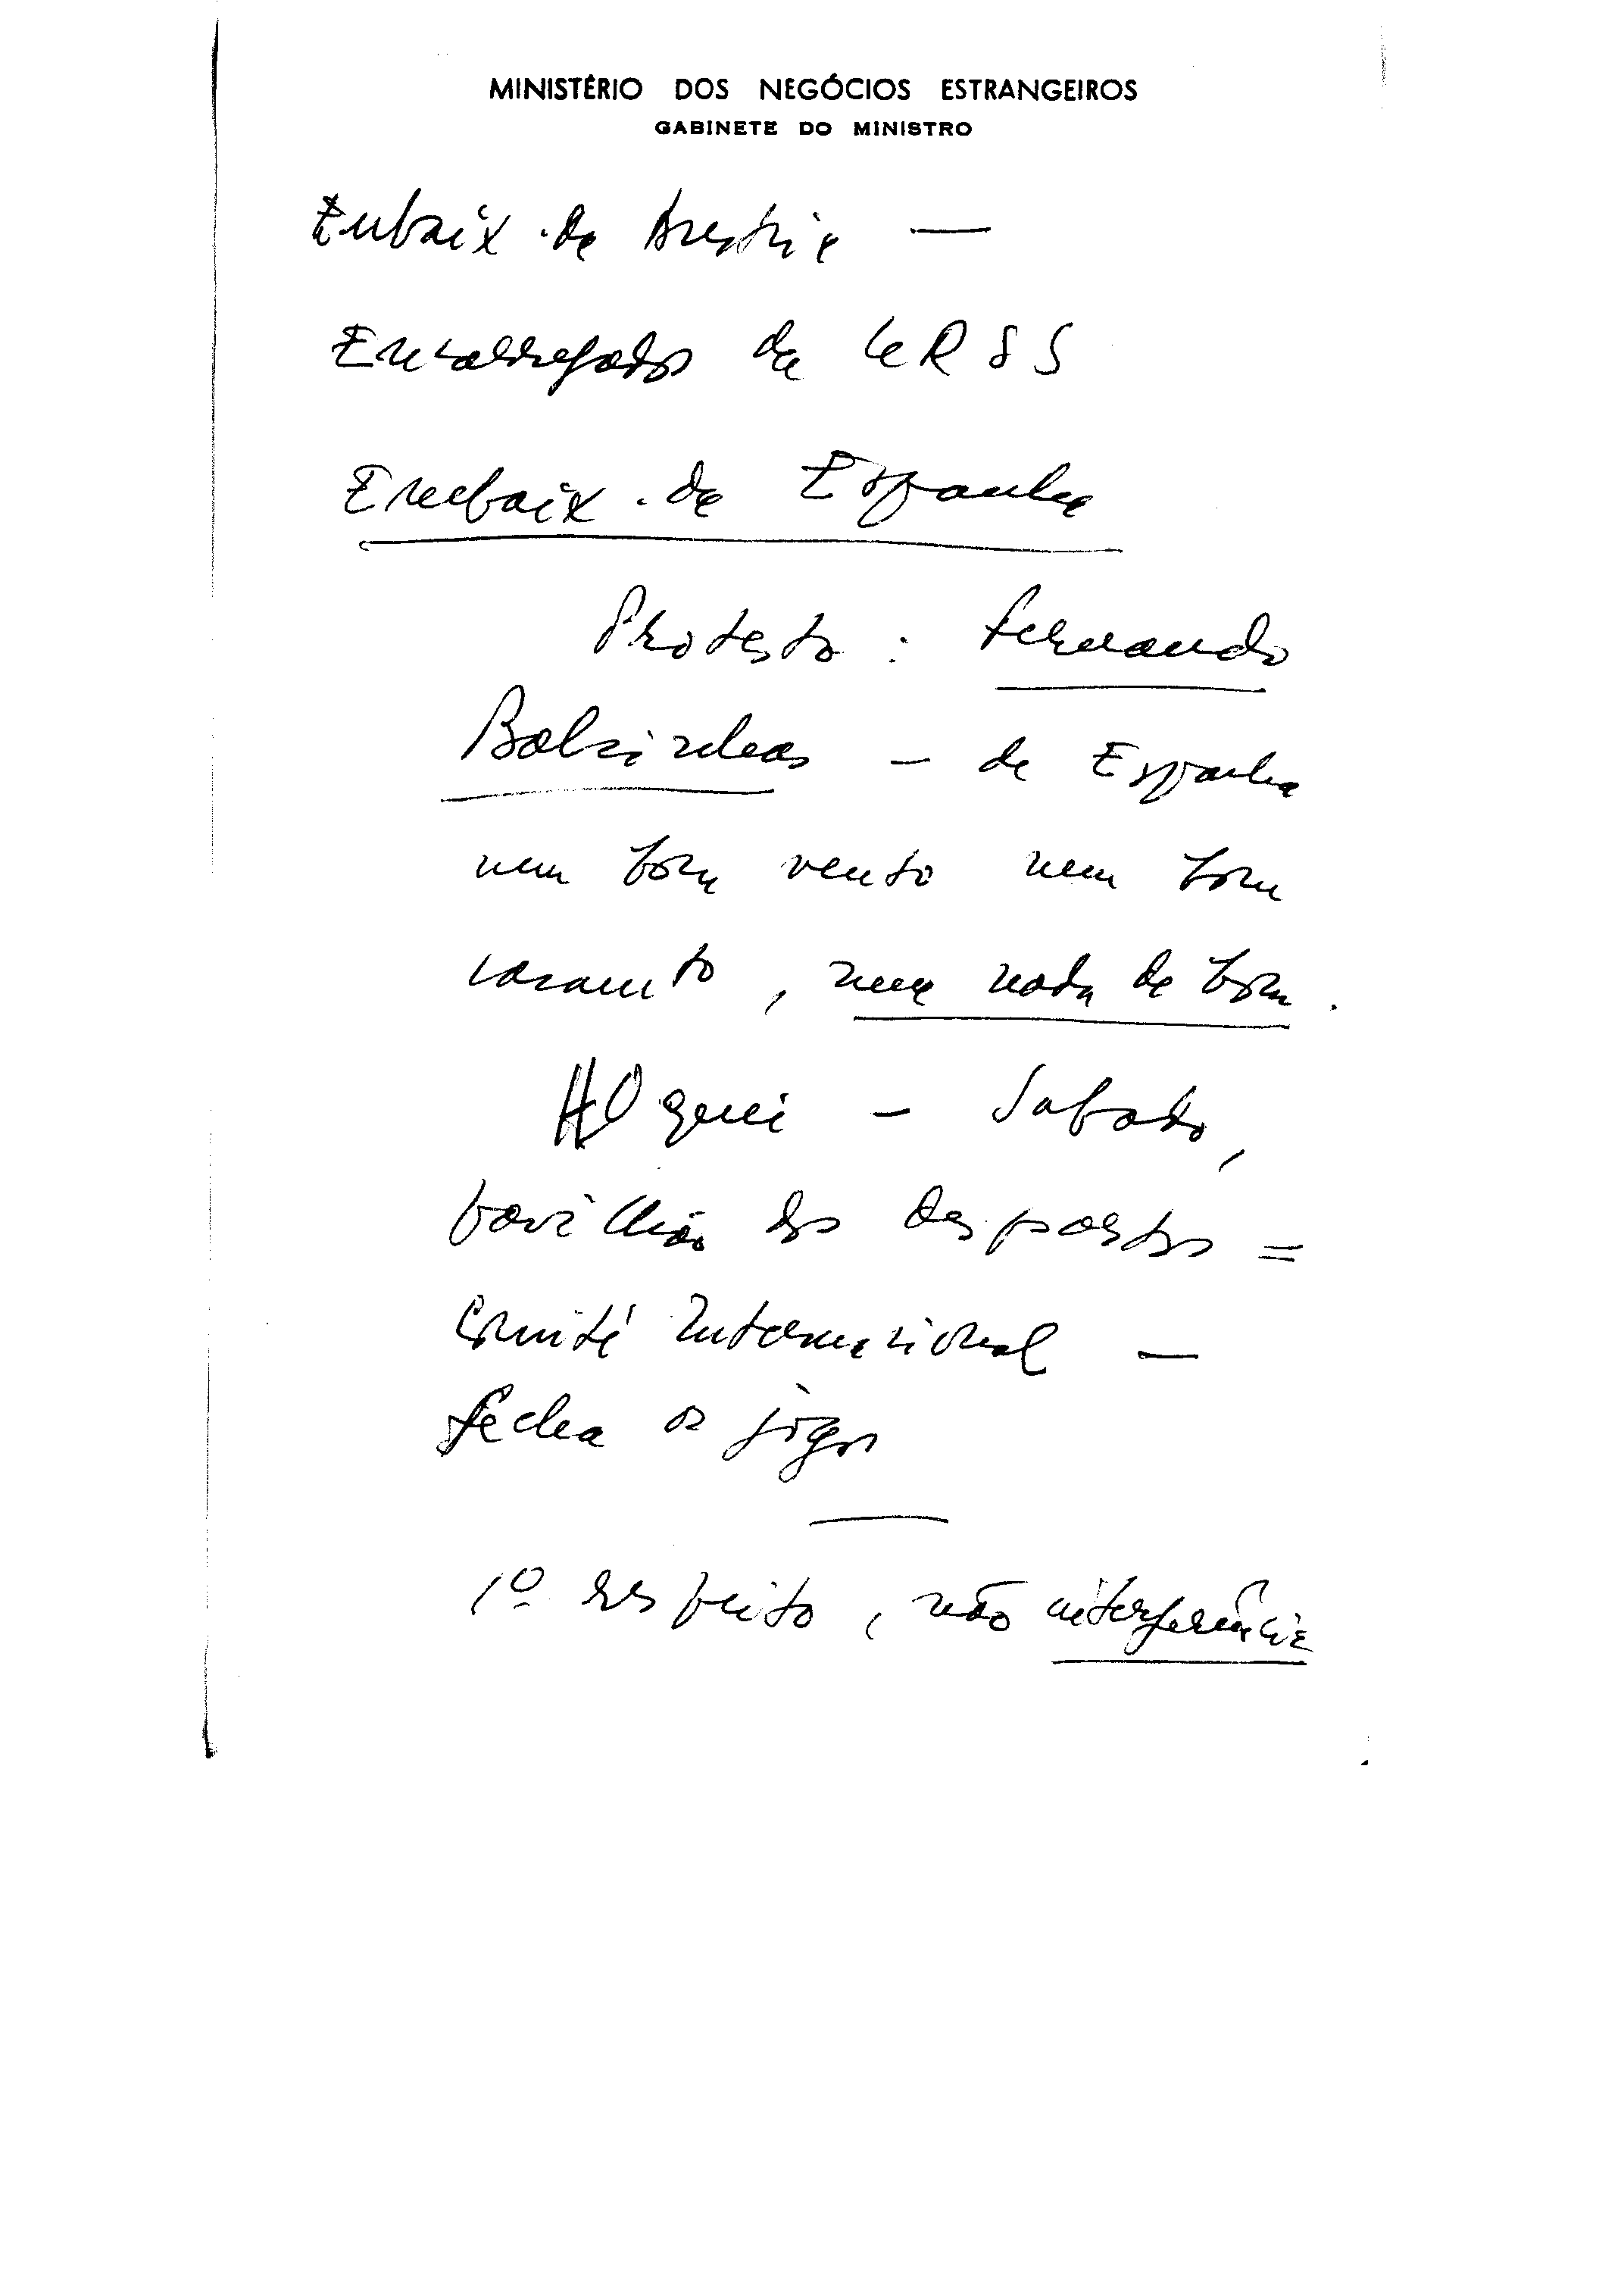 MINISTÉRIO DOS NEGÓCIOS ESTRANGEIROS
GABINETE DO MINISTRO
Embaix. da Austria —
Encarregado da URSS
Embaix. da Espanha
Protesto : Fernando
Balsinhas — de Espanha
nem bom vento nem bom
casamento, nem nada de bom.
HOquei — Sabado,
pavilhão dos desportos =
Comité Internacional —
fecha os jogos
1º respeito, não interferência